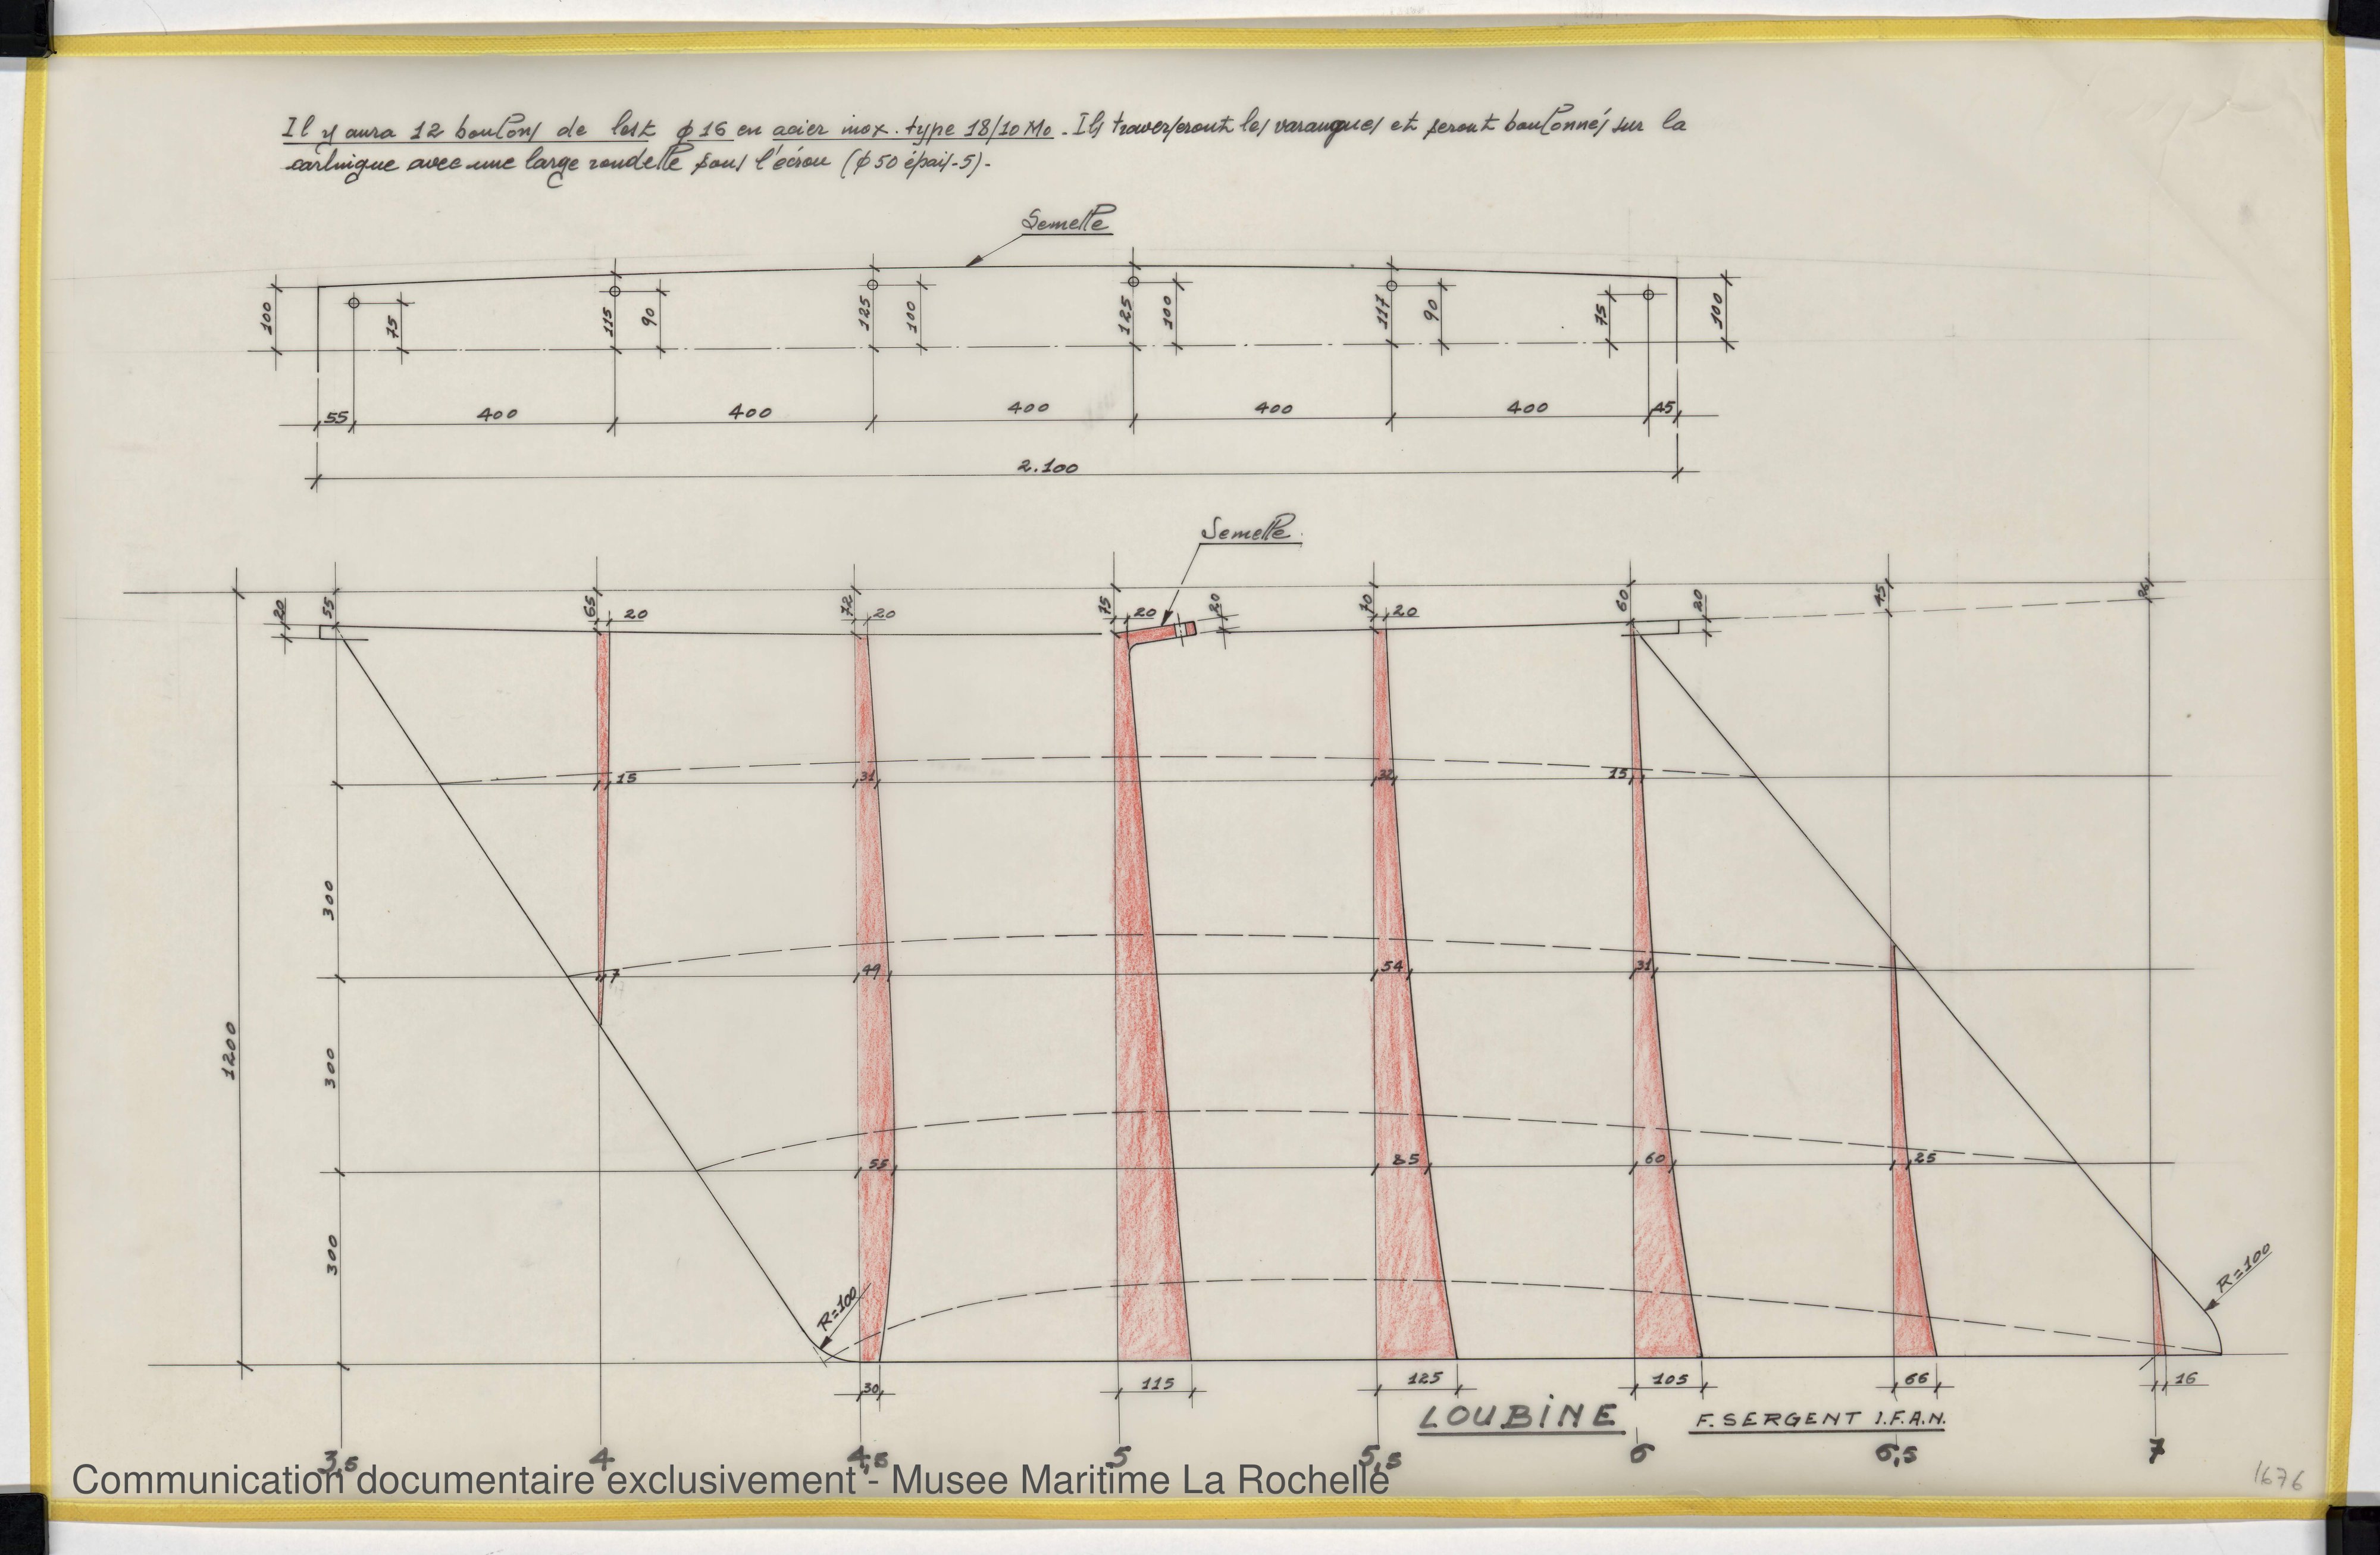 Il y aura 12 boulons de lest ϕ16 en acier inox. type 18/10 Mo. Ils traverseront les varangues et seront boulonnés sur la
carlingue avec une large rondelle sous l'écrou (ϕ50 épais-5).
Semelle
100 75 115 90 125 100 125 100 117 90 75 100
55 400 400 400 400 400 45
2.100
Semelle.
20 55 65 20 72 20 75 20 20 70 20 60 20 45
15 31 32 15
300
7 49 54 31
1200
300
55 85 60 25
300
R=100 R=100
30 115 125 105 66 16
LOUBINE F. SERGENT I.F.A.N.
3,5 4 4,5 5 5,5 6 6,5 7
Communication documentaire exclusivement - Musee Maritime La Rochelle
1676